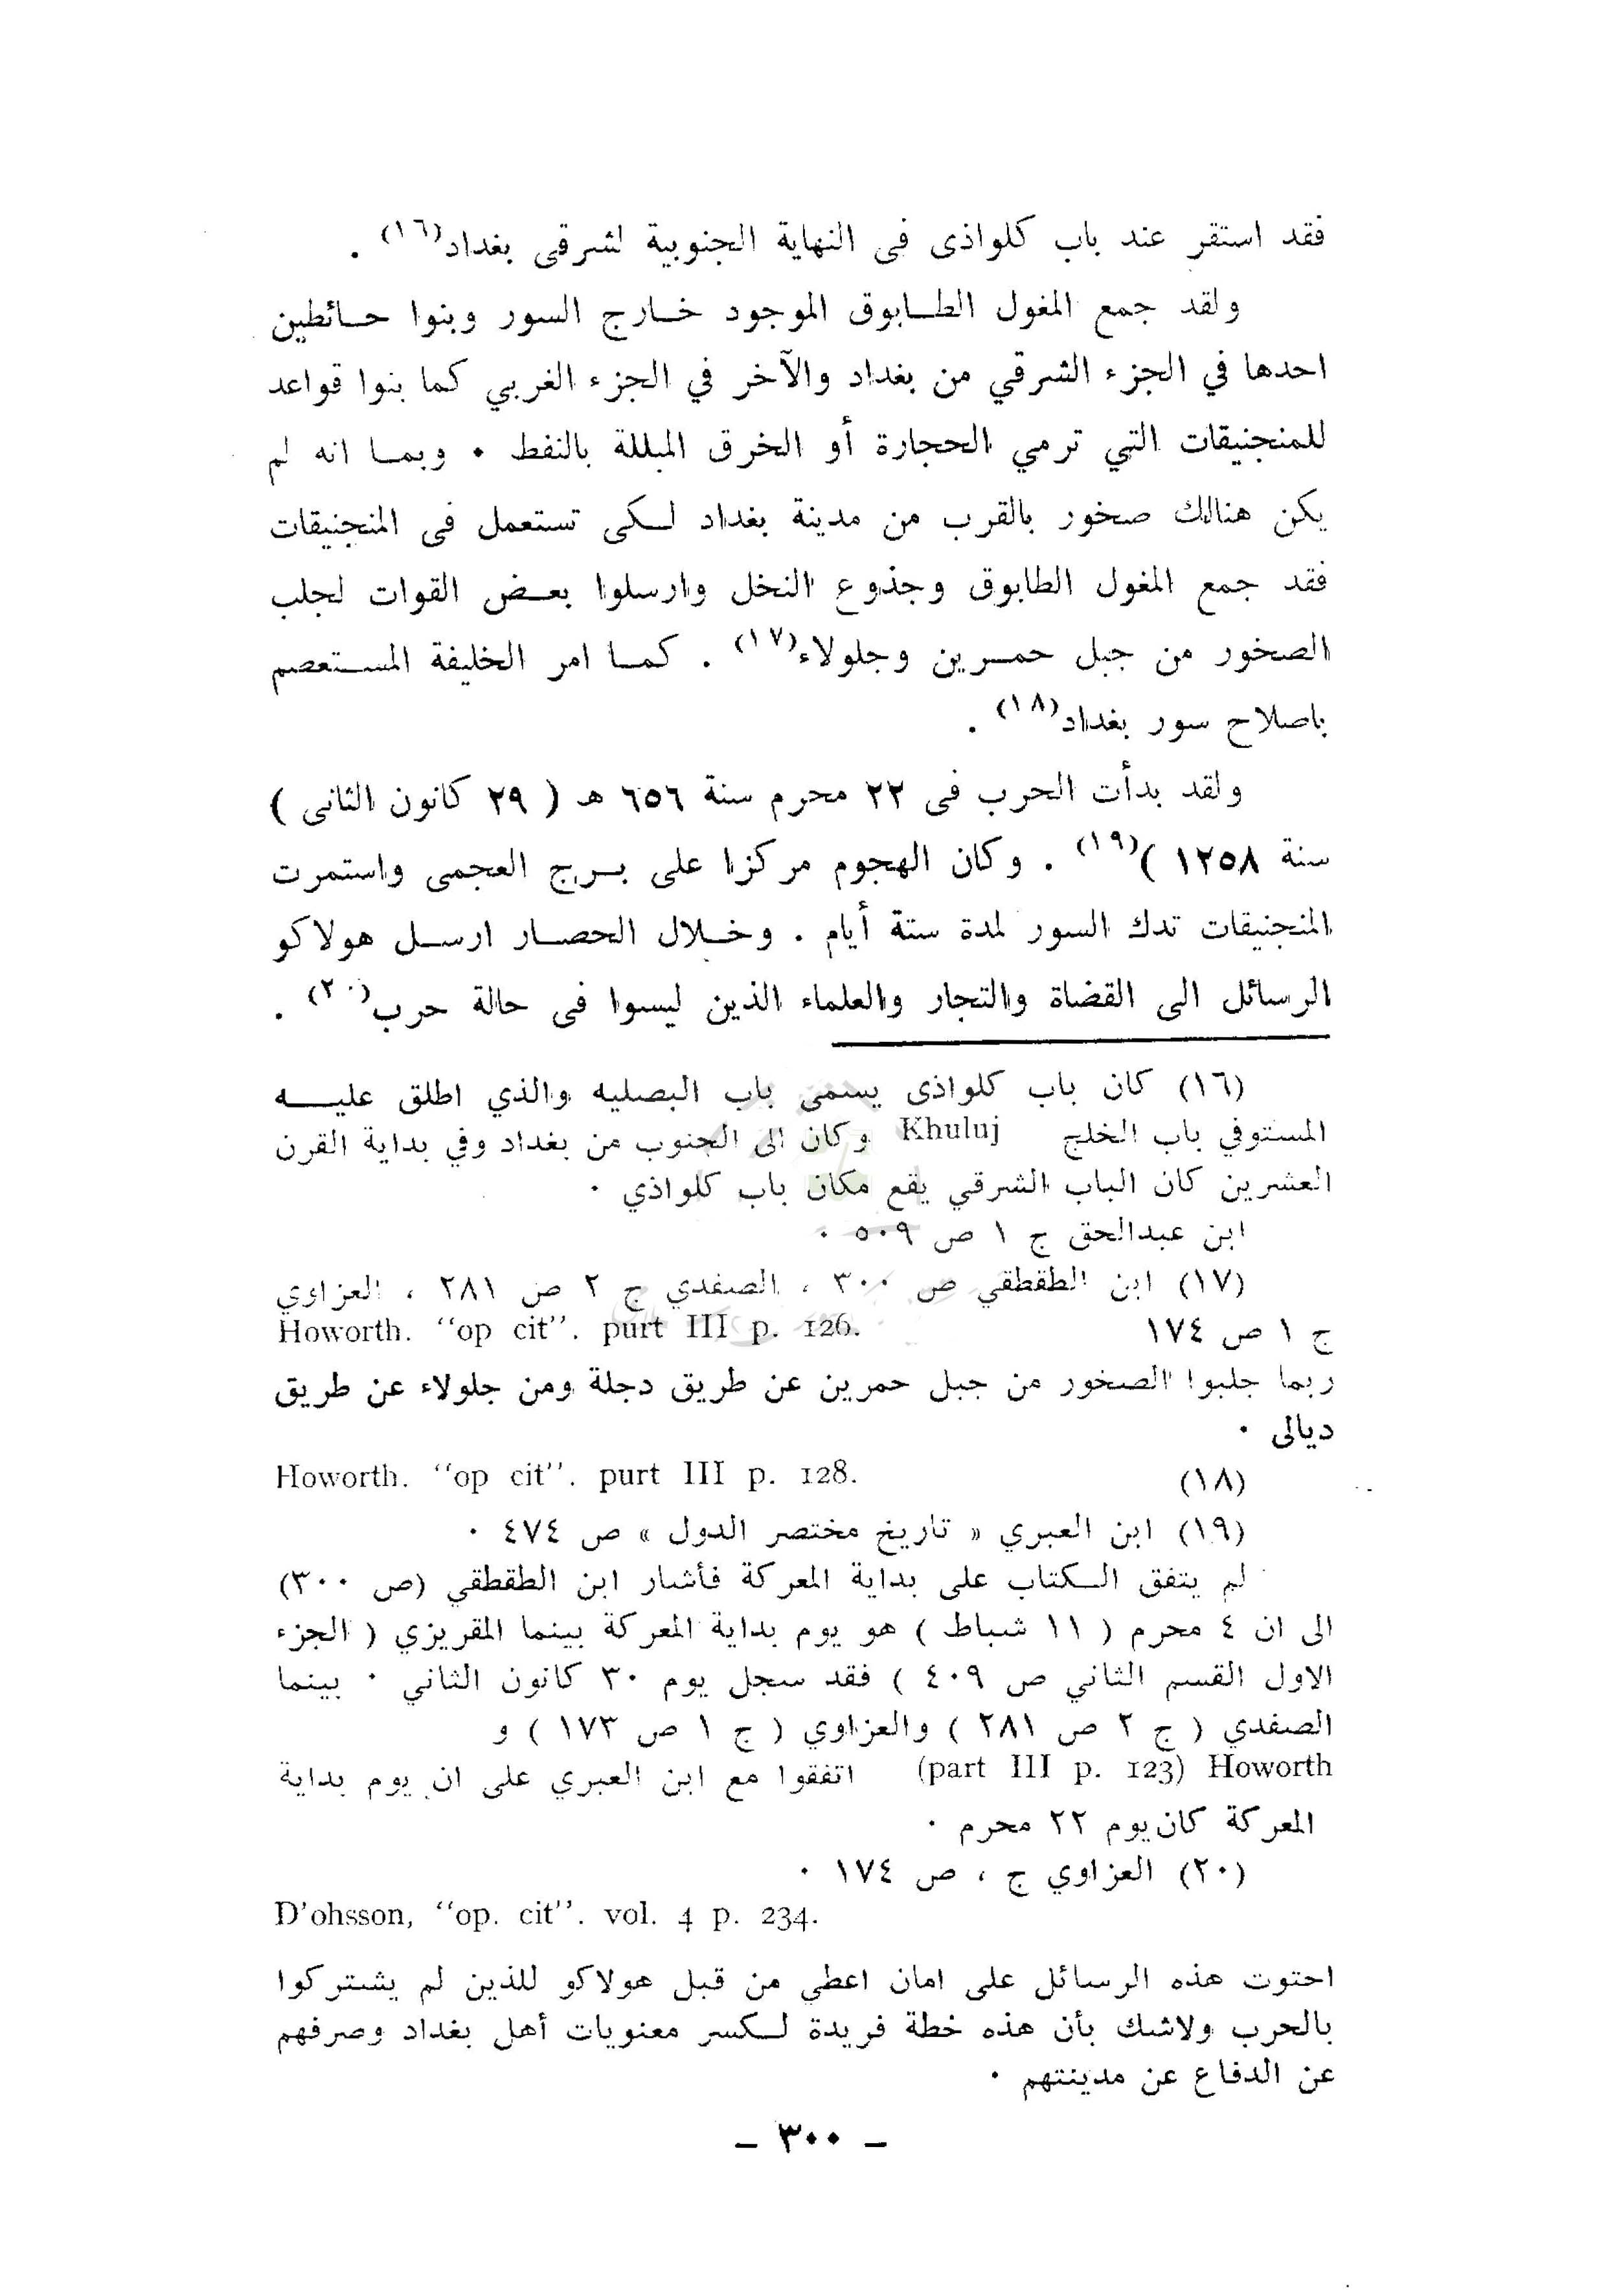 فقد استقر عند باب كلواذى فى النهاية الجنوبية لشرقى بغداد(١٦) .
ولقد جمع المغول الطـابوق الموجود خـارج السور وبنوا حـائطين
احدها في الجزء الشرقي من بغداد والآخر في الجزء الغربي كما بنوا قواعد
للمنجنيقات التي ترمي الحجارة أو الخرق المبللة بالنفط ٠ وبمـا انه لم
يكن هنالك صخور بالقرب من مدينة بغداد لـكى تستعمل فى المنجنيقات
فقد جمع المغول الطابوق وجذوع النخل وارسلوا بعـض القوات لجلب
الصخور من جبل حمـرين وجلولاء(١٧) . كمـا امر الخليفة المسـتعصم
باصلاح سور بغداد(١٨) .
ولقد بدأت الحرب فى ٢٢ محرم سنة ٦٥٦ هـ ( ٢٩ كانون الثانى )
سنة ١٢٥٨ )(١٩) . وكان الهجوم مركزا على بـرج العجمى واستمرت
المنجنيقات تدك السور لمدة ستة أيام . وخـلال الحصـار ارسـل هولاكو
الرسائل الى القضاة والتجار والعلماء الذين ليسوا فى حالة حرب(٢٠) .
(١٦) كان باب كلواذى يسمى باب البصليه والذي اطلق عليـــه
المستوفي باب الخلج Khuluj وكان الى الجنوب من بغداد وفي بداية القرن
العشرين كان الباب الشرقي يقع مكان باب كلواذي ٠
ابن عبدالحق ج ١ ص ٥٠٩ ٠
(١٧) ابن الطقطقي ص ٣٠٠ ، الصفدي ج ٢ ص ٢٨١ ، العزاوي
ج ١ ص ١٧٤ Howorth. "op cit". purt III p. 126.
ربما جلبوا الصخور من جبل حمرين عن طريق دجلة ومن جلولاء عن طريق
ديالى ٠
(١٨) Howorth. "op cit". purt III p. 128.
(١٩) ابن العبري « تاريخ مختصر الدول » ص ٤٧٤ ٠
لم يتفق الـكتاب على بداية المعركة فأشار ابن الطقطقي (ص ٣٠٠)
الى ان ٤ محرم ( ١١ شباط ) هو يوم بداية المعركة بينما المقريزي ( الجزء
الاول القسم الثاني ص ٤٠٩ ) فقد سجل يوم ٣٠ كانون الثاني ٠ بينما
الصفدي ( ج ٢ ص ٢٨١ ) والعزاوي ( ج ١ ص ١٧٣ ) و
Howorth (part III p. 123) اتفقوا مع ابن العبري على ان يوم بداية
المعركة كان يوم ٢٢ محرم ٠
(٢٠) العزاوي ج ، ص ١٧٤ ٠
D'ohsson, "op. cit". vol. 4 p. 234.
احتوت هذه الرسائل على امان اعطي من قبل هولاكو للذين لم يشتركوا
بالحرب ولاشك بأن هذه خطة فريدة لـكسر معنويات أهل بغداد وصرفهم
عن الدفاع عن مدينتهم ٠
– ٣٠٠ –